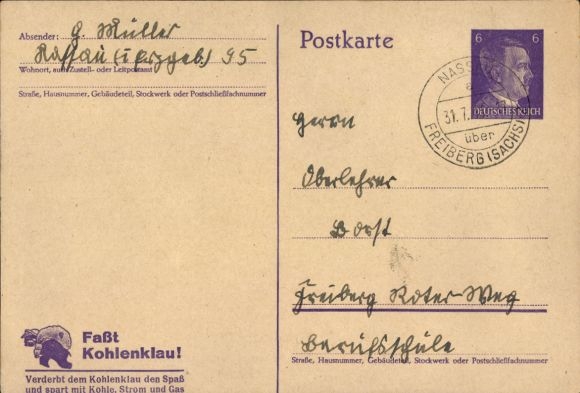 Absender: G. Müller
Nassau (i. Erzgeb.) 95
Wohnort, auch Zustell- oder Leitpostamt
Straße, Hausnummer, Gebäudeteil, Stockwerk oder Postschließfachnummer
Postkarte
6 6
DEUTSCHES REICH
NASSAU
31.7.
über
FREIBERG (SACHS)
Herrn
Oberlehrer
Borst
Freiberg Roter Weg
Berufsschule
Straße, Hausnummer, Gebäudeteil, Stockwerk oder Postschließfachnummer
Faßt
Kohlenklau!
Verderbt dem Kohlenklau den Spaß
und spart mit Kohle, Strom und Gas